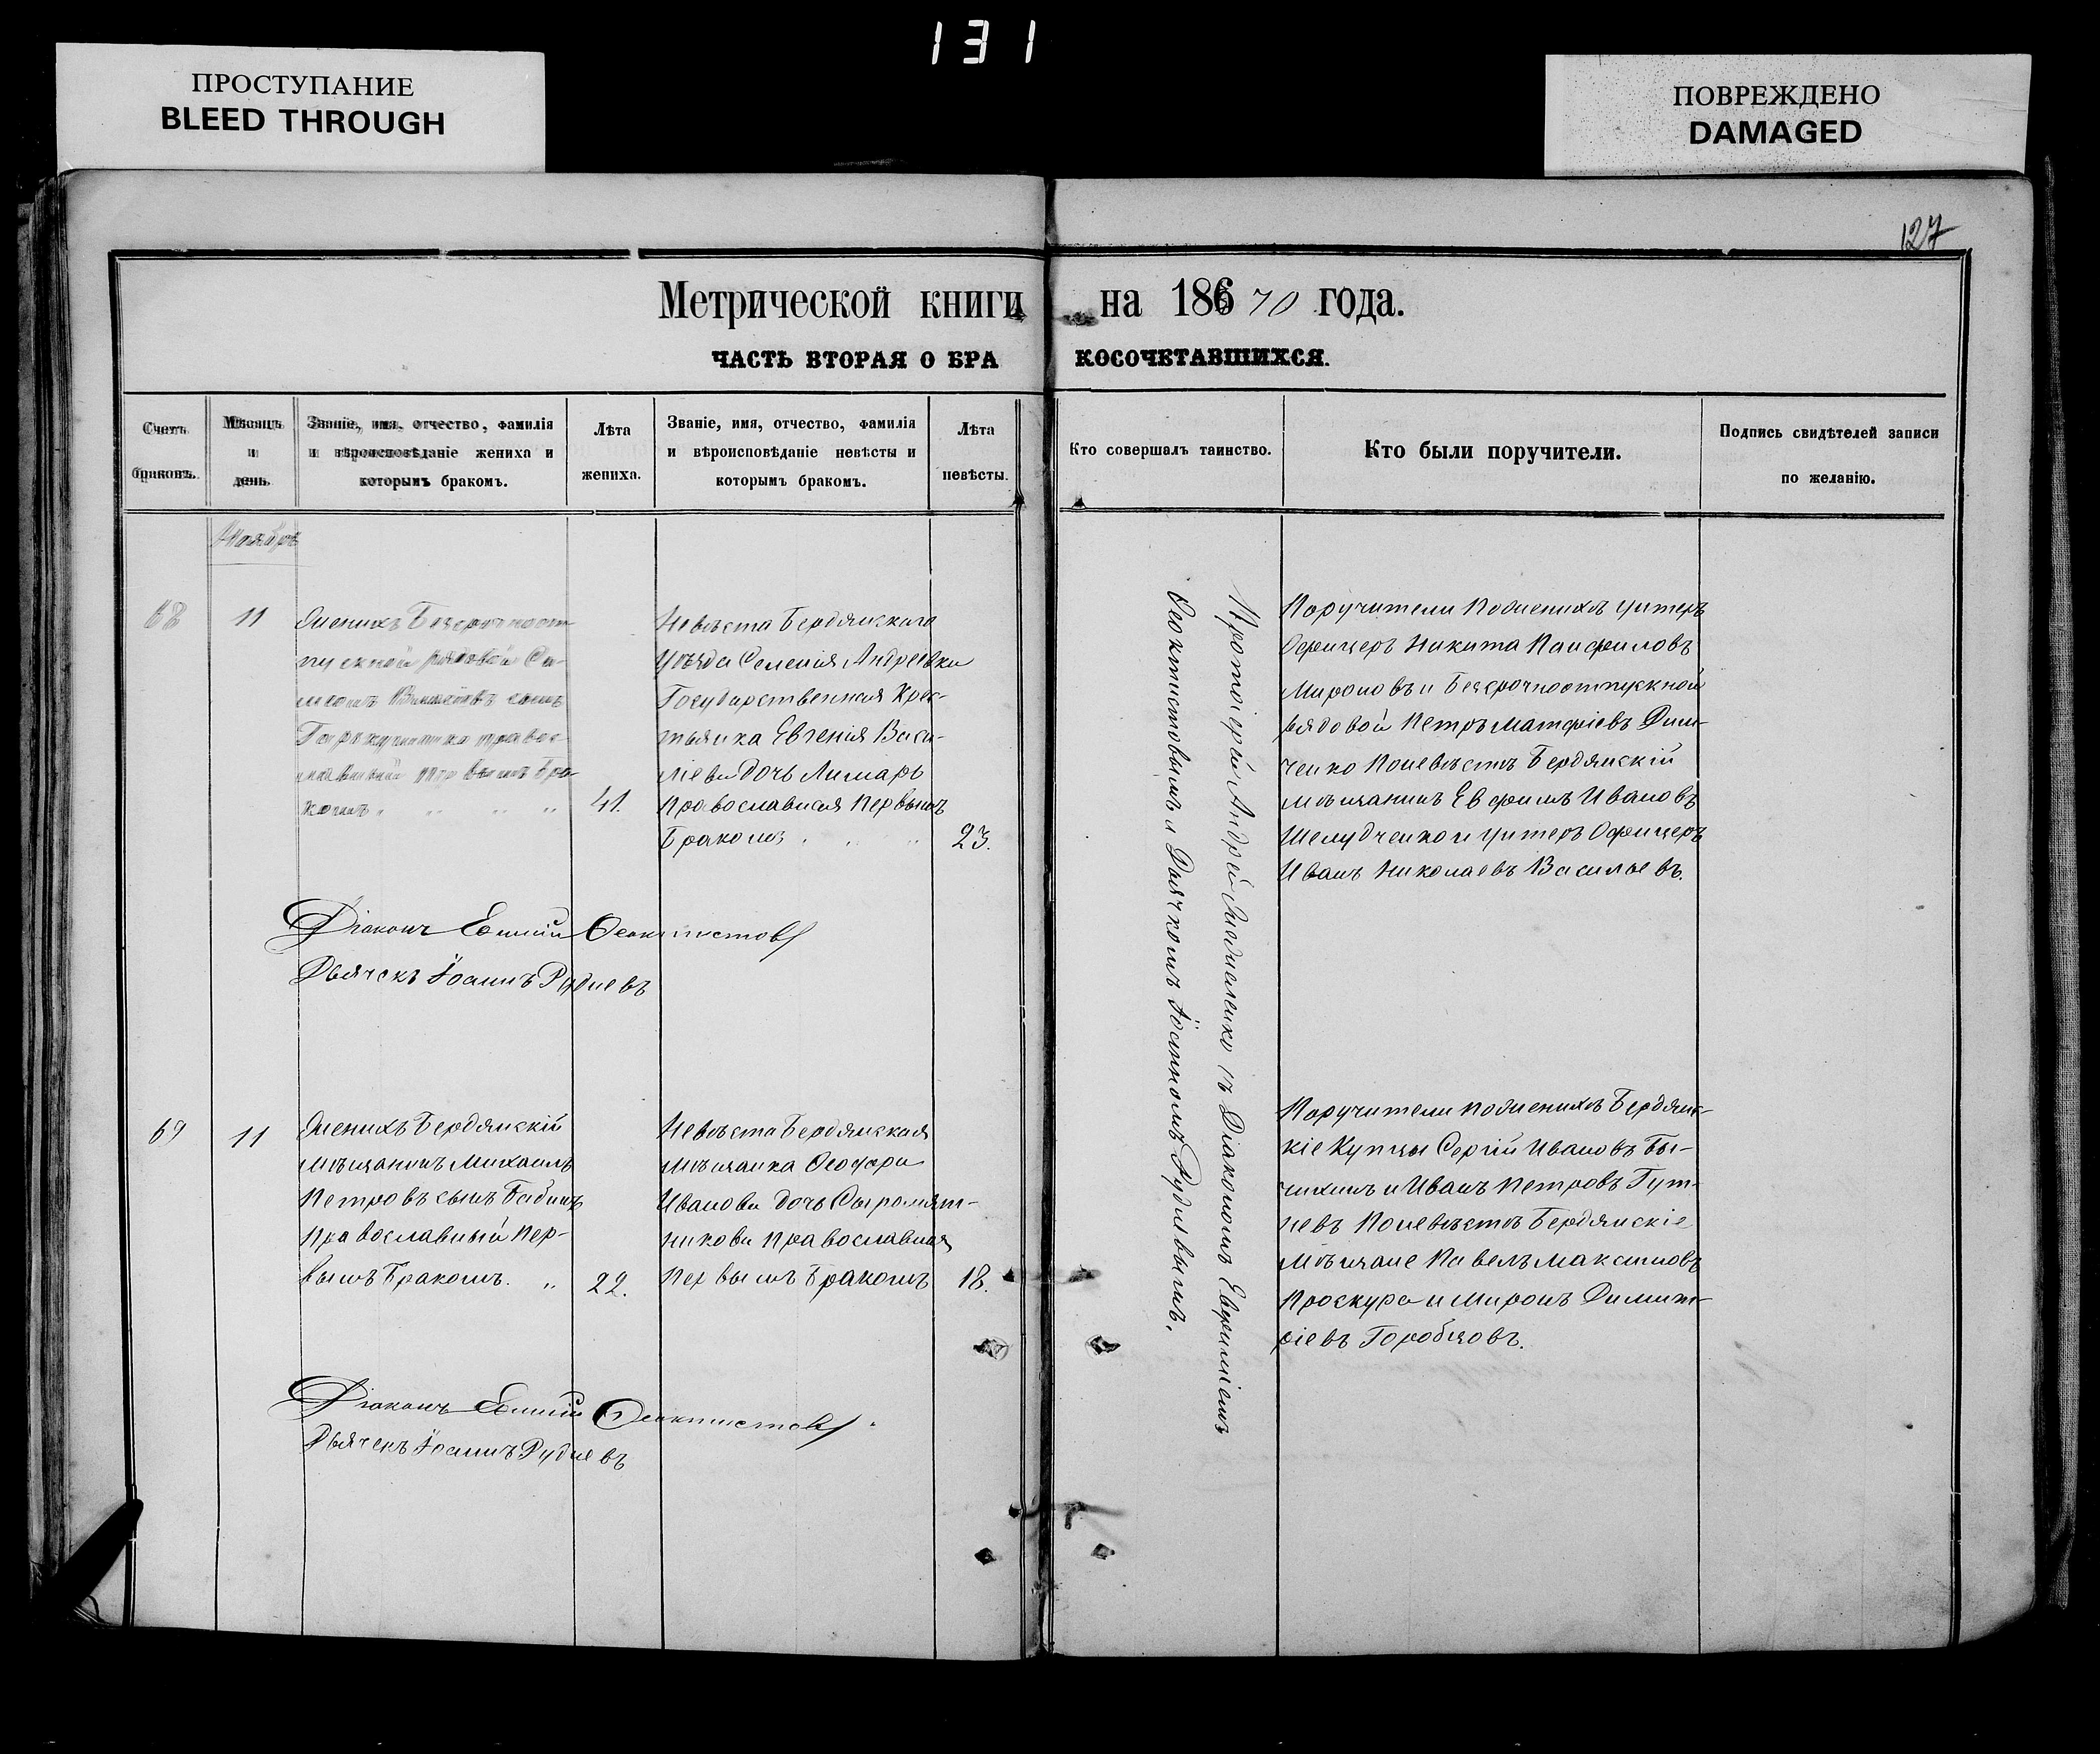 131
ПРОСТУПАНИЕ
BLEED THROUGH
ПОВРЕЖДЕНО
DAMAGED
127
Метрической книги на 186 70 года.
ЧАСТЬ ВТОРАЯ О БРАКОСОЧЕТАВШИХСЯ.
Счетъ
браковъ.
Мѣсяцъ
и
день.
Званіе, имя, отчество, фамилія
и вѣроисповѣданіе жениха и
которымъ бракомъ.
Лѣта
жениха.
Званіе, имя, отчество, фамилія
и вѣроисповѣданіе невѣсты и
которымъ бракомъ.
Лѣта
невѣсты.
Кто совершалъ таинство.
Кто были поручители.
Подпись свидѣтелей записи
по желанію.
Ноябрь
68
11
Женихъ Безсрочноот-
пускной рядовой
сынъ
правос-
лавный первымъ бра-
комъ
41.
Невѣста Бердянскаго
Уѣзда Селенія Андреевки
Государственная Крес-
тьянка Евгенія Васи-
ліева дочь Лимарь
Православная первымъ
Бракомъ
23.
Протоіерей Андрей съ Діакономъ Евфиміемъ
Феоктистовымъ и Дьячкомъ Іоанномъ Рудневымъ.
Поручители по женихѣ унтеръ
Офицеръ Никита Панфиловъ
Мироновъ и Безсрочноотпускной
рядовой Петръ Матфіевъ Дим-
ченко По невѣстѣ Бердянскій
мѣщанинъ Евфимъ Ивановъ
Шелудченко и унтеръ Офицеръ
Иванъ Николаевъ Васильевъ.
Діаконъ Евфимій Феоктистовъ
Дьячекъ Іоаннъ Рудневъ
69
11
Женихъ Бердянскій
мѣщанинъ Михаилъ
Петровъ сынъ Бабинъ
Православный Пер-
вымъ Бракомъ.
22.
Невѣста Бердянская
мѣщанка
Иванова дочь Сыромят-
никова Православная
Первымъ Бракомъ
18.
Поручители по женихѣ Бердянс-
кіе Купцы Сергій Ивановъ Бы-
чихинъ и Иванъ Петровъ Гут-
невъ По невѣстѣ Бердянскіе
мѣщане Павелъ Максимовъ
Проскура и Миронъ Димит-
ріевъ Горобцовъ.
Діаконъ Евфимій Феоктистовъ
Дьячекъ Іоаннъ Рудневъ